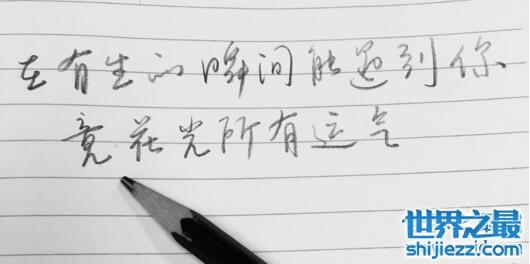 在有生的瞬间能遇到你
竟花光所有运气
世界之最
shijiezz.com